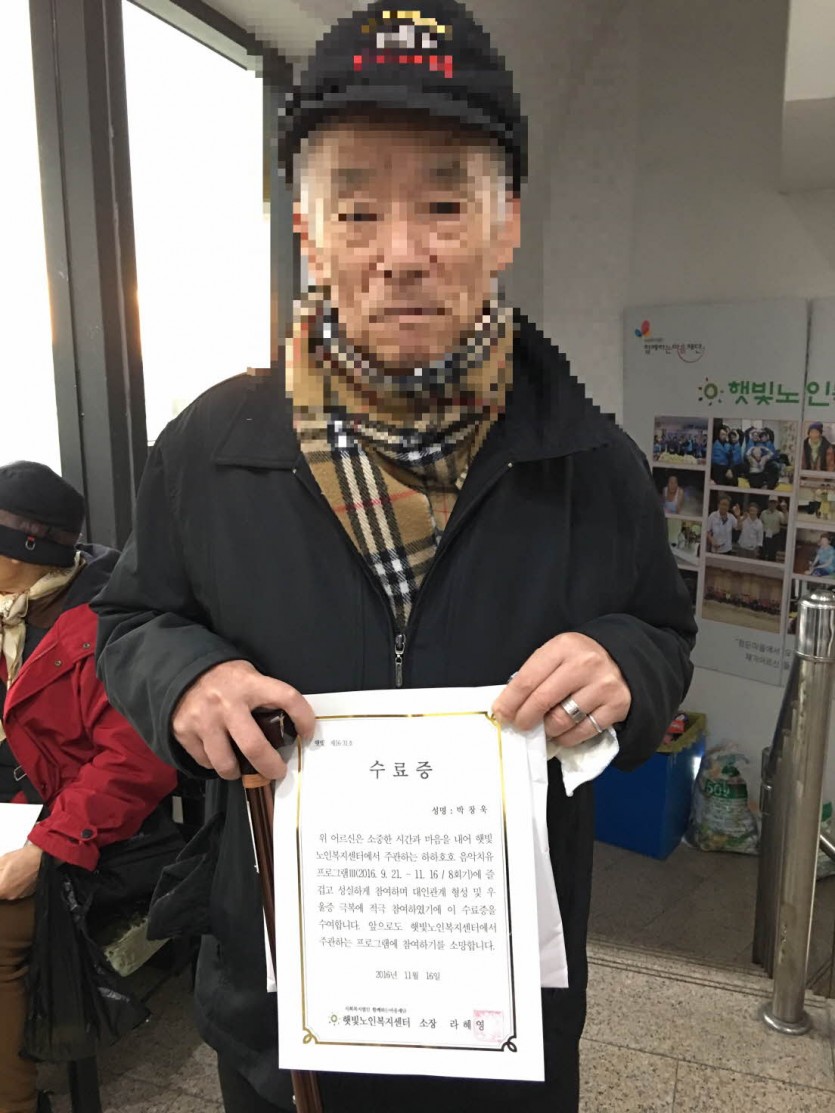 함께하는마음재단
햇빛노인
햇빛 제16-31호
수 료 증
성명 : 박 창 욱
위 어르신은 소중한 시간과 마음을 내어 햇빛
노인복지센터에서 주관하는 하하호호 음악치유
프로그램III(2016. 9. 21. - 11. 16 / 8회기)에 즐
겁고 성실하게 참여하며 대인관계 형성 및 우
울증 극복에 적극 참여하였기에 이 수료증을
수여합니다. 앞으로도 햇빛노인복지센터에서
주관하는 프로그램에 참여하기를 소망합니다.
2016년 11월 16일
사회복지법인 함께하는마음재단
햇빛노인복지센터 소장 라 혜 영